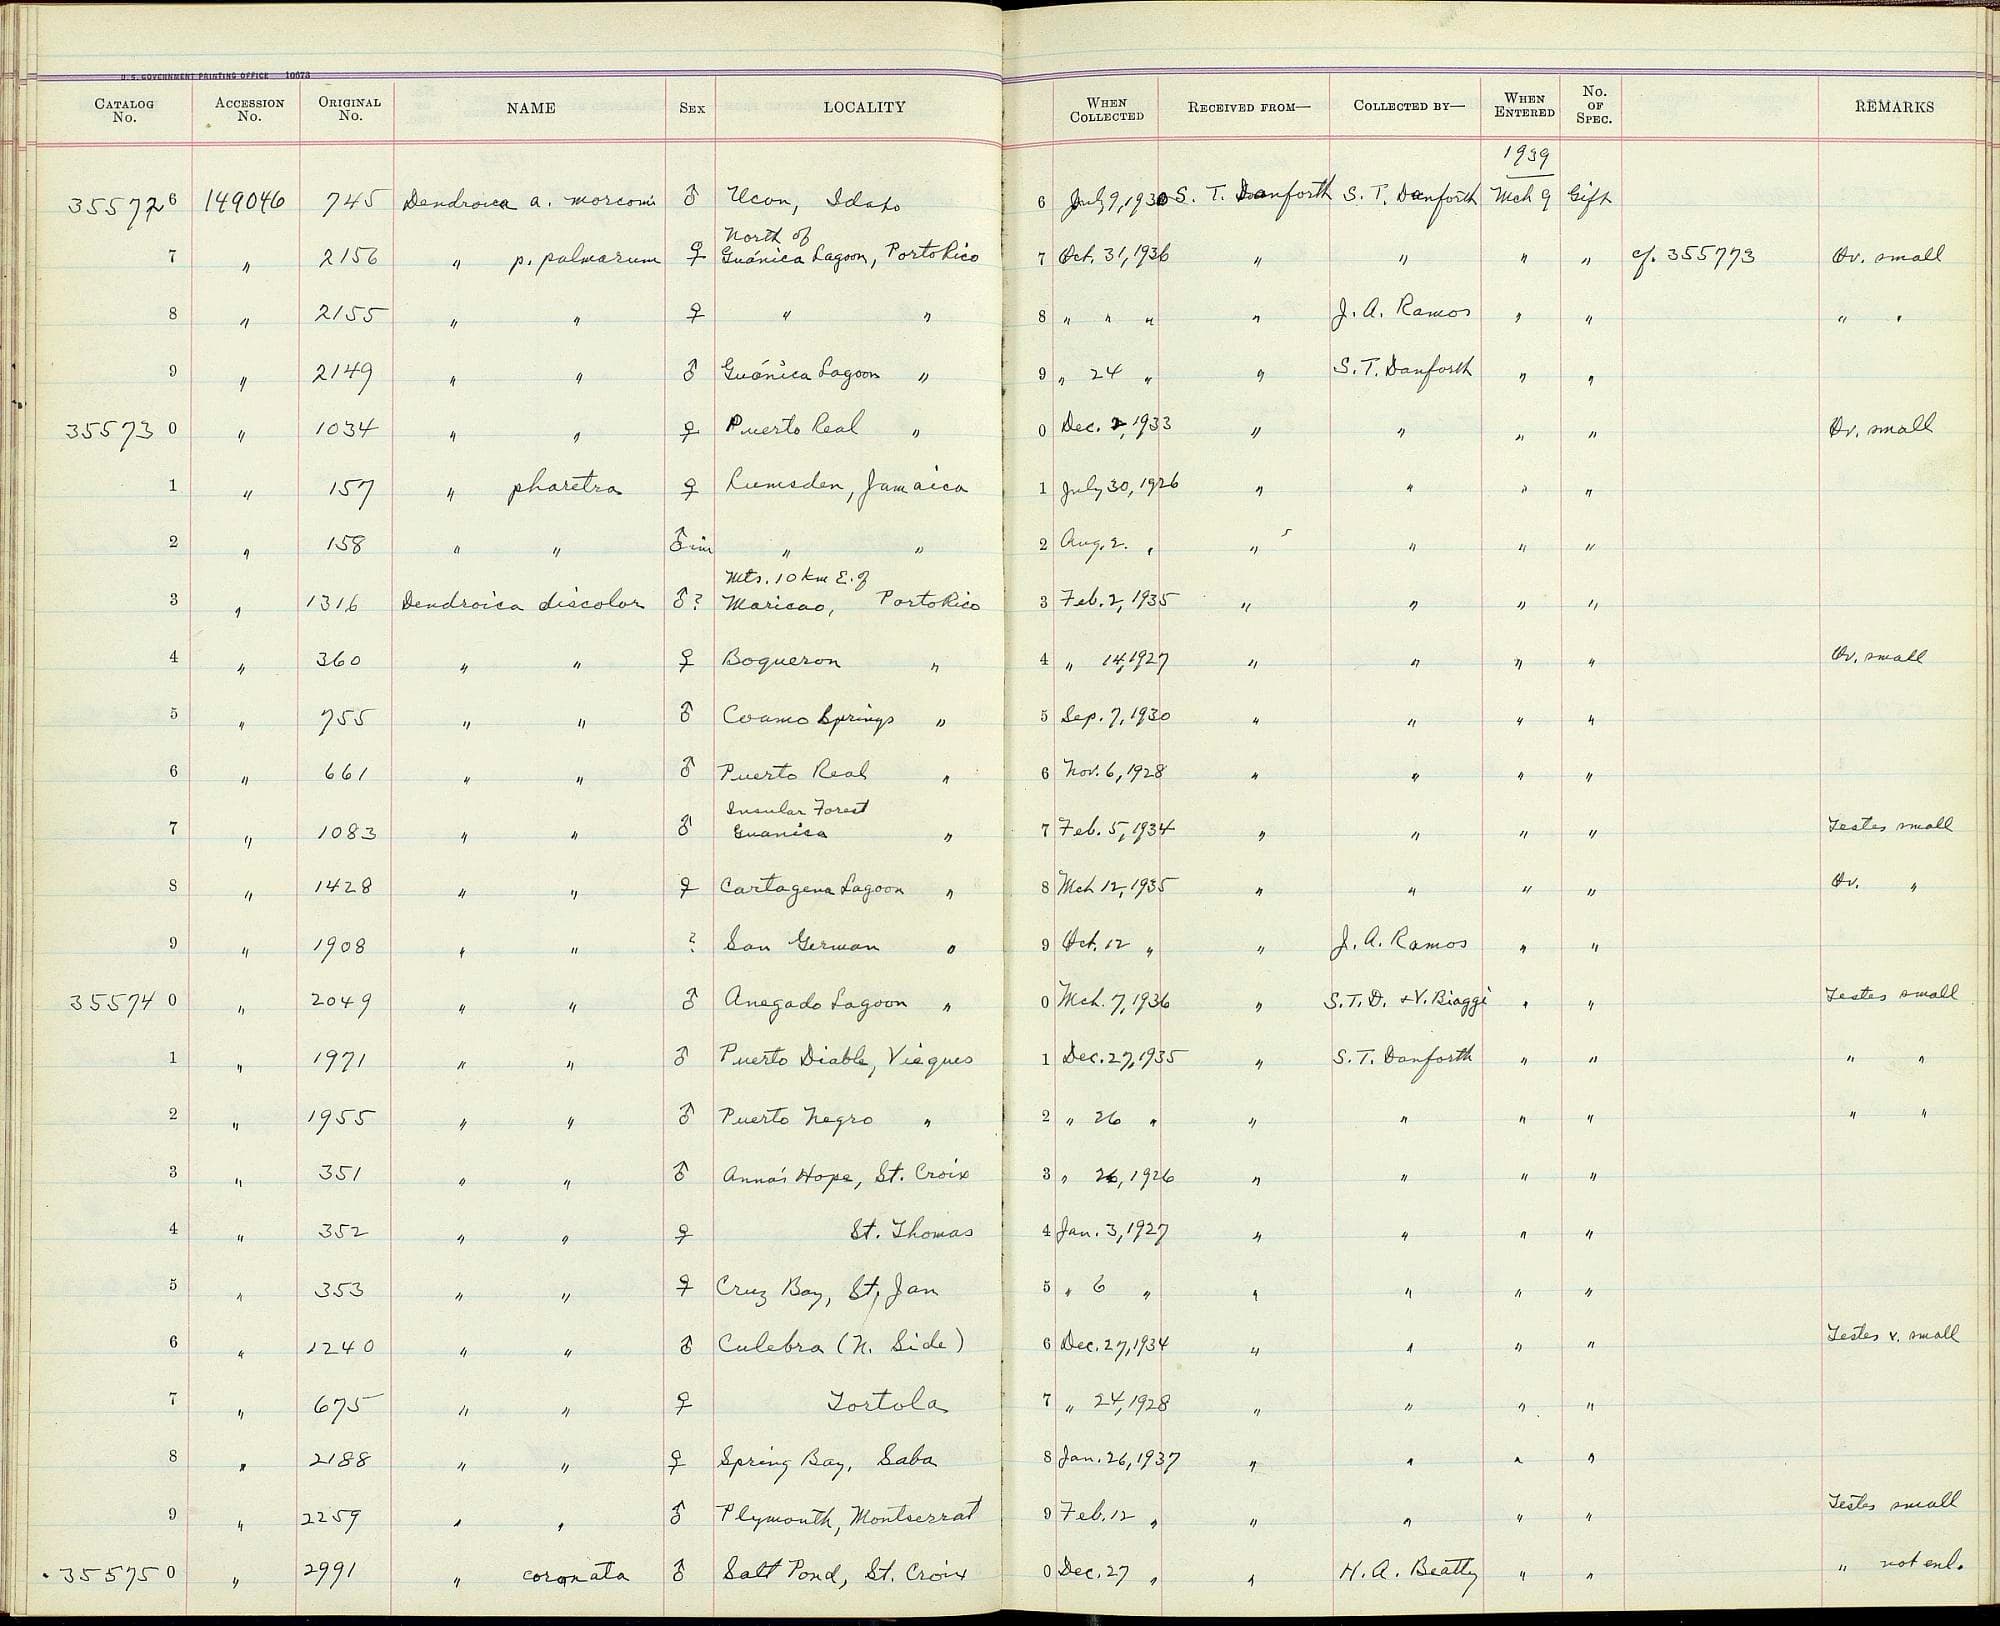 U. S. GOVERNMENT PRINTING OFFICE 10673
CATALOG No. ACCESSION No. ORIGINAL No. NAME SEX LOCALITY WHEN COLLECTED RECEIVED FROM— COLLECTED BY— WHEN ENTERED No. OF SPEC. REMARKS
1939
355726 149046 745 Dendroica a. morcomi ♂ Ucon, Idaho 6 July 9, 1930 S. T. Danforth S. T. Danforth Mch 9 Gift
North of
7 " 2156 " p. palmarum ♀ Guánica Lagoon, Porto Rico 7 Oct. 31, 1936 " " " " cf. 355773 Ov. small
8 " 2155 " " ♀ " " 8 " " " " J. A. Ramos " " " "
9 " 2149 " " ♂ Guánica Lagoon " 9 " 24 " " S. T. Danforth " "
355730 " 1034 " " ♀ Puerto Real " 0 Dec. 2, 1933 " " " " Ov. small
1 " 157 " pharetra ♀ Lumsden, Jamaica 1 July 30, 1926 " " " "
2 " 158 " " ♂ im " " 2 Aug. 2. " " " " "
Mts. 10 km E. of
3 " 1316 Dendroica discolor ♂? Maricao, Porto Rico 3 Feb. 2, 1935 " " " "
4 " 360 " " ♀ Boqueron " 4 " 14, 1927 " " " " Ov. small
5 " 755 " " ♂ Coamo Springs " 5 Sep. 7, 1930 " " " "
6 " 661 " " ♂ Puerto Real " 6 Nov. 6, 1928 " " " "
Insular Forest
7 " 1083 " " ♂ Guanica " 7 Feb. 5, 1934 " " " " Testes small
8 " 1428 " " ♀ Cartagena Lagoon " 8 Mch 12, 1935 " " " " Ov. "
9 " 1908 " " ? San German " 9 Oct. 12 " " J. A. Ramos " "
355740 " 2049 " " ♂ Anegado Lagoon " 0 Mch. 7, 1936 " S. T. D. + V. Biaggi " " Testes small
1 " 1971 " " ♂ Puerto Diable, Vieques 1 Dec. 27, 1935 " S. T. Danforth " " " "
2 " 1955 " " ♂ Puerto Negro " 2 " 26 " " " " " " "
3 " 351 " " ♂ Anna's Hope, St. Croix 3 " 26, 1926 " " " "
4 " 352 " " ♀ St. Thomas 4 Jan. 3, 1927 " " " "
5 " 353 " " ♀ Cruz Bay, St. Jan 5 " 6 " " " " "
6 " 1240 " " ♂ Culebra (N. Side) 6 Dec. 27, 1934 " " " " Testes v. small
7 " 675 " " ♀ Tortola 7 " 24, 1928 " " " "
8 " 2188 " " ♀ Spring Bay, Saba 8 Jan. 26, 1937 " " " "
9 " 2259 " " ♂ Plymouth, Montserrat 9 Feb. 12 " " " " " Testes small
355750 " 2991 " coronata ♂ Salt Pond, St. Croix 0 Dec. 27 " " H. A. Beatty " " " not enl.